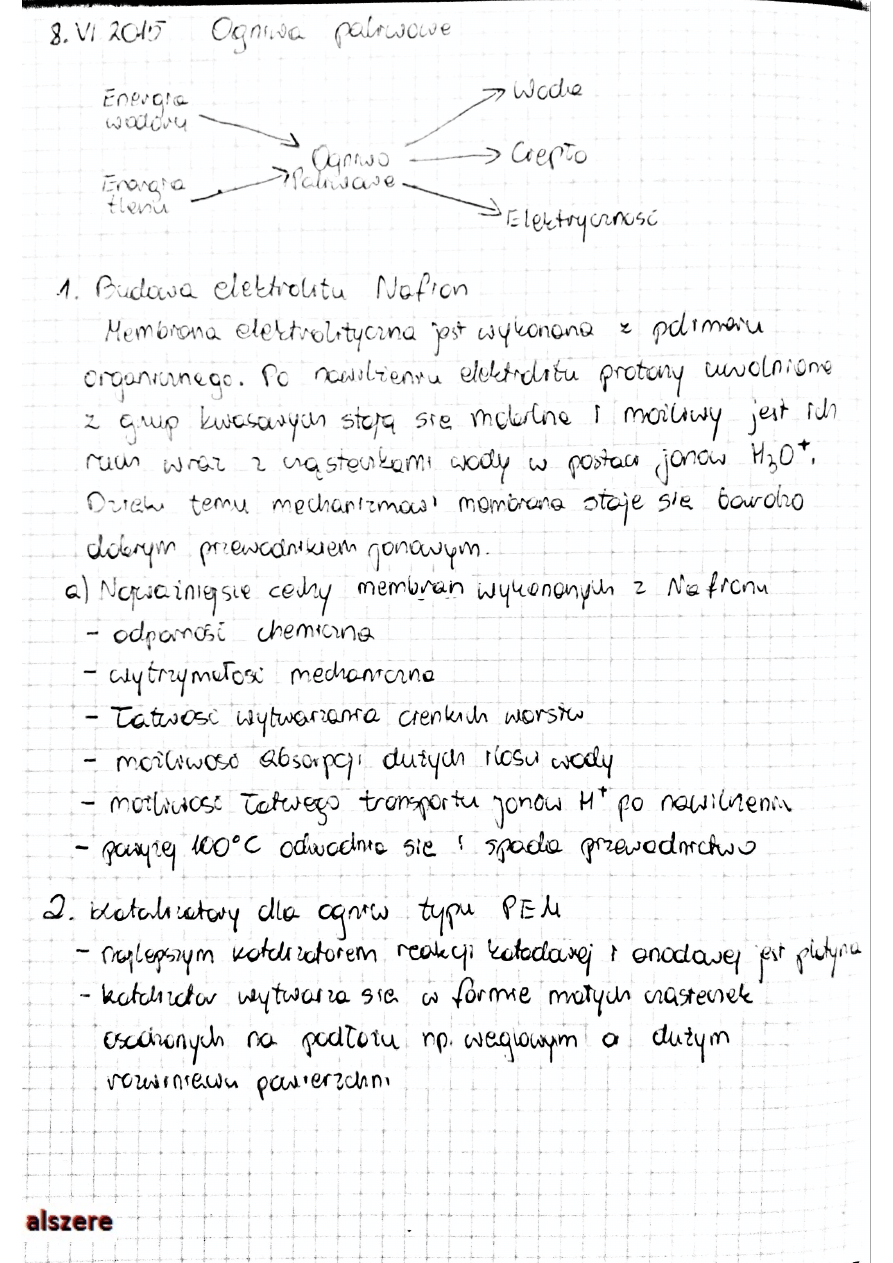 8. VI 2015 Ogniwa paliwowe
Energia
wodoru
Energia
tlenu
Ogniwo
Paliwowe
Woda
Ciepło
Elektryczność
1. Budowa elektrolitu Nafion
Membrana elektrolityczna jest wykonana z polimeru
organicznego. Po nawilżeniu elektrolitu protony uwolnione
z grup kwasowych stają się mobilne i możliwy jest ich
ruch wraz z cząsteczkami wody w postaci jonów H₃O⁺.
Dzięki temu mechanizmowi membrana staje się bardzo
dobrym przewodnikiem jonowym.
a) Najważniejsze cechy membran wykonanych z Nafionu
- odporność chemiczna
- wytrzymałość mechaniczna
- łatwość wytwarzania cienkich warstw
- możliwość absorpcji dużych ilości wody
- możliwość łatwego transportu jonów H⁺ po nawilżeniu
- powyżej 100°C odwadnia się i spada przewodnictwo
2. Katalizatory dla ogniw typu PEM
- najlepszym katalizatorem reakcji katodowej i anodowej jest platyna
- katalizator wytwarza się w formie małych cząsteczek
osadzonych na podłożu np. węglowym o dużym
rozwinięciu powierzchni
alszere